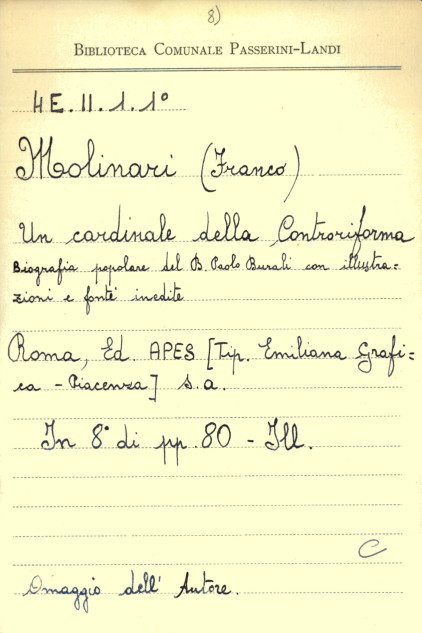 8)
BIBLIOTECA COMUNALE PASSERINI-LANDI
4E.II.1.1°
Molinari (Franco)
Un cardinale della Controriforma
Biografia popolare del B. Paolo Burali con illustra=
zioni e fonti inedite
Roma, Ed. APES [Tip. Emiliana Grafi=
ca - Piacenza] s.a.
In 8° di pp. 80 - Ill.
C
Omaggio dell' Autore.